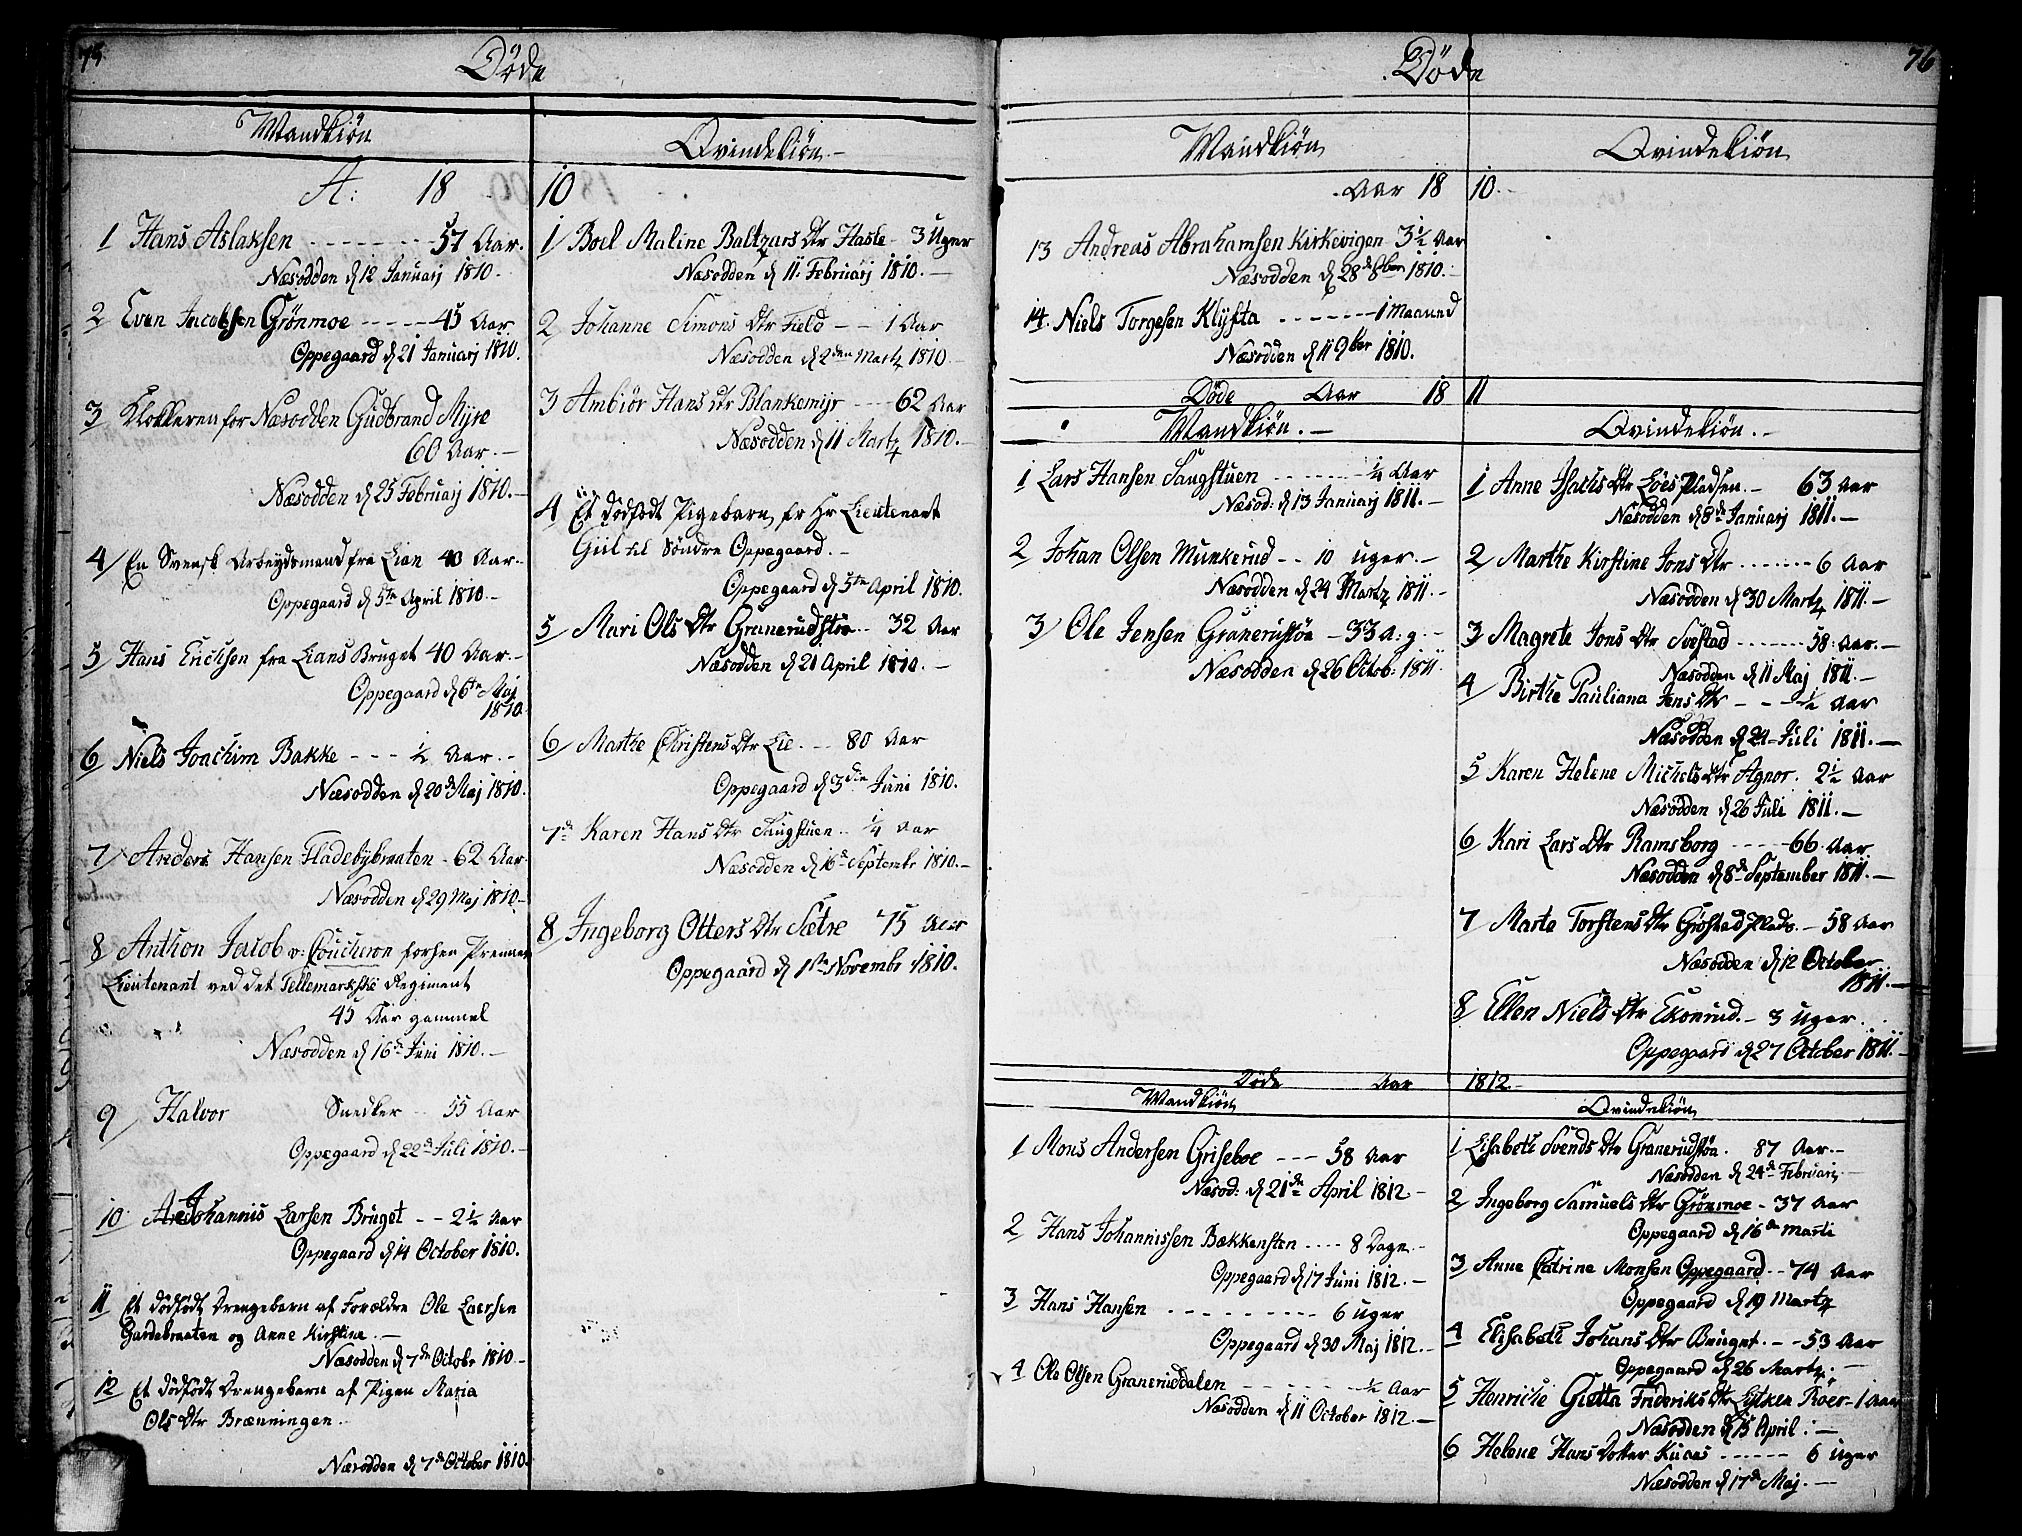 75
Døde
Mandkiøn
A: 18
1 Hans Aslaksen - - - - - - - - 57 Aar.
Næsodden d 12 Januarj 1810.
2 Even Jacobsen Grønmoe - - - - - 45 Aar.
Oppegaard d 21 Januarj 1810.
3 Klokkeren for Næsodden Gudbrand Myre
60 Aar. -
Næsodden d 25 Februarj 1810. -
4 En Svensk Arbeydsmand fra Lian 40 Aar.
Oppegaard d 5te April 1810. -
5 Hans Ericksen fra Lians Bruget 40 Aar. -
Oppegaard d 6te Maj
1810.
6 Niels Joachim Bakke - - - ½ Aar. -
Næsodden d 20de Maj 1810.
7 Anders Hansen Fladebybraaten - 62 Aar
Næsodden d 29 Maj 1810. -
8 Anthon Jacob v: Coucheron forhen Premier
Lieutenant ved det Tellemarkske Regiment
45 Aar gammel
Næsodden d 16de Juni 1810. -
9 Halvor Snedker - - 55 Aar
Oppegaard d 22de Juli 1810. -
10 Johannis Larsen Bruget - - 2½ Aar
Oppegaard d 14 October 1810.
11 Et dødfødt Drengebarn af Forældre Ole Laersen
Gardebraaten og Anne Kirstine. -
Næsodden d 7de Octobr 1810 -
12 Et dødfødt Drengebarn af Pigen Maria
Ols Dtr Brænningen.
Næsodden d 7de October 1810.
Qvindekiøn -
10
1 Boel Maline Baltzars Dtr Hasle - 3 Uger
Næsodden d 11. Februarj 1810. -
2 Johanne Simons Dtr Field - - 1 Aar
Næsodden d 2den Martz 1810 -
3 Ambiør Hans Dtr Blankemyr - - - 62 Aar
Næsodden d 11 Martz 1810. -
4 Et dødfødt Pigebarn for Hr Lieutenant
Giil til Søndre Oppegaard. -
Oppegaard d 5te April 1810.
5 Mari Ols Dtr Granerudstøe - 32 Aar
Næsodden d 21 April 1810. -
6 Marthe Christens Dtr Lie. - - 80 Aar
Oppegaard d 3die Juni 1810.
7de Karen Hans Dtr Saugstuen - - ¼ Aar
Næsodden d 16de Septembr 1810. -
8 Ingeborg Otters Dtr Sætre 75 Aar
Oppegaard d 1ste Novembr 1810.
76
Døde
Mandkiøn
Qvindekiøn
Aar 18 10. -
13 Andreas Abrahamsen Kirkevigen 3½ Aar
Næsodden d 28de 8ber 1810. -
14. Niels Torgesen Klyfta - - - - - - - 1 Maaned
Næsodden d 11 9ber 1810.
Døde Aar 18 11
Mandkiøn. -
1 Lars Hansen Saugstuen - - - - - - - ¼ Aar
Næsod: d 13 Januarj 1811. -
2 Johan Olsen Munkerud - - 10 Uger. -
Næsodden d 24 Martz 1811. -
3 Ole Jensen Granerudstøe - 33 A: g: -
Næsodden d 26 Octob: 1811
Qvindekiøn. -
1 Anne Isachs Dtr Pladsen. - 63 Aar
Næsodden d 8de Januarj 1811. -
2 Marthe Kirstine Jons Dtr - - - - - - - 6 Aar
Næsodden d 30 Martz 1811. -
3 Magrete Jons Dtr Svestad - - - - - - 58 Aar. -
Næsodden d 11 Maj 1811. -
4 Birthe Pauliana Jens Dtr - - - - ½ Aar
Næsodden d 24 Juli 1811. -
5 Karen Helene Michels Dtr Agnor. 2½ Aar
Næsodden d 26 Juli 1811. -
6 Kari Lars Dtr Ramsborg - - - - - 66 Aar
Næsodden d 8de September 1811. -
7 Marte Torstens Dtr Plads. - 58 Aar
Næsodden d 12 October
1811. -
8 Ellen Niels Dtr Ekornrud. - 3 Uger.
Oppegaard d 27 October 1811. -
Døde Aar 1812 -
Mandkiøn
1 Mons Andersen Griseboe - - - 58 Aar
Næsod: d 21de April 1812 -
2 Hans Johannissen Bækkensten - - - - 8 Dage. -
Oppegaard d 17 Juni 1812. -
3 Hans Hansen - - - - - - - - - 6 Uger
Oppegaard d 30 Maj 1812. -
4 Ole Olsen Graneruddalen - - - - - - - - ½ Aar
Næsodden d 11 October 1812. -
Qvindekiøn
1 Lisabeth Svends Dtr Granerudstøe. 87 Aar. -
Næsodden d 24de Februarj. -
2 Ingeborg Samuels Dtr Grønmoe - 37 Aar
Oppegaard d 16de Marti
3 Anne Catrine Monsen Oppegaard - - 74 Aar
Oppegaard d 19 Martz
4 Elisabeth Johans Dtr Bruget. - - 53 Aar
Oppegaard d 26 Martz. -
5 Henriche Gietta Frideriks Dtr Lytken Roer - 1 Aar
Næsodden d 15 April. -
6 Helene Hans Dotter - - - - - - 6 Uger
Næsodden d 17de Maj. -